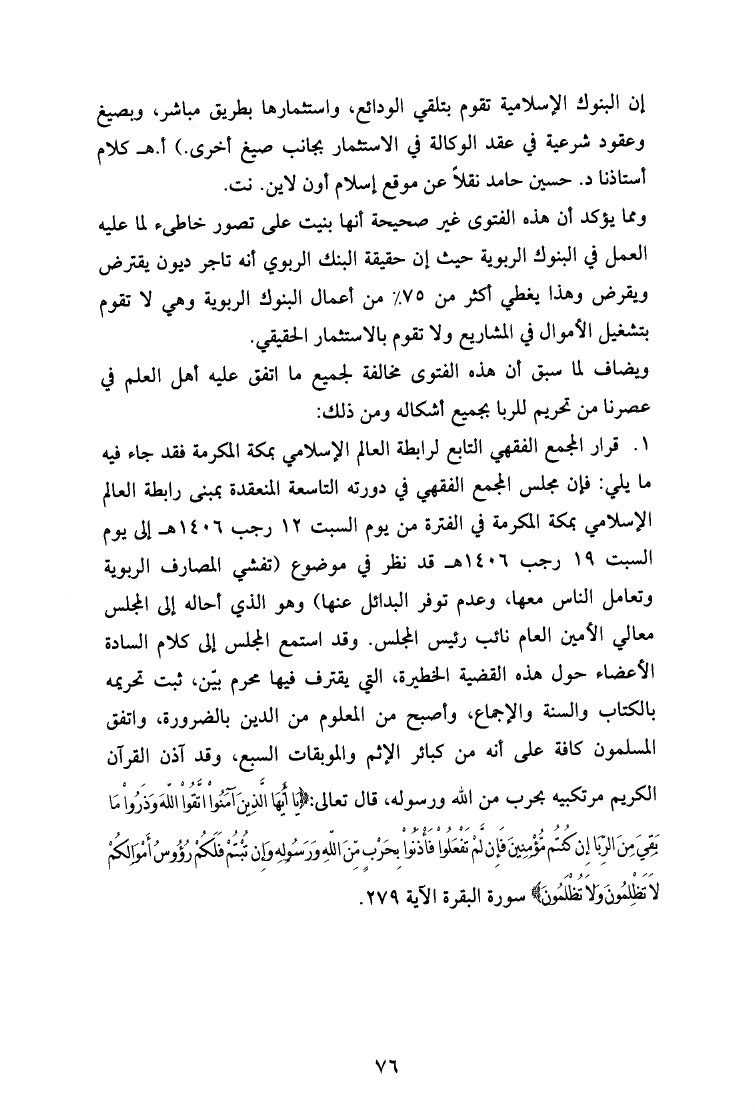 إن البنوك الإسلامية تقوم بتلقي الودائع، واستثمارها بطريق مباشر، وبصيغ
وعقود شرعية في عقد الوكالة في الاستثمار بجانب صيغ أخرى.) أ.هـ كلام
أستاذنا د. حسين حامد نقلاً عن موقع إسلام أون لاين. نت.
ومما يؤكد أن هذه الفتوى غير صحيحة أنها بنيت على تصور خاطىء لما عليه
العمل في البنوك الربوية حيث إن حقيقة البنك الربوي أنه تاجر ديون يقترض
ويقرض وهذا يغطي أكثر من ٧٥٪ من أعمال البنوك الربوية وهي لا تقوم
بتشغيل الأموال في المشاريع ولا تقوم بالاستثمار الحقيقي.
ويضاف لما سبق أن هذه الفتوى مخالفة لجميع ما اتفق عليه أهل العلم في
عصرنا من تحريم للربا بجميع أشكاله ومن ذلك:
١. قرار المجمع الفقهي التابع لرابطة العالم الإسلامي بمكة المكرمة فقد جاء فيه
ما يلي: فإن مجلس المجمع الفقهي في دورته التاسعة المنعقدة بمبنى رابطة العالم
الإسلامي بمكة المكرمة في الفترة من يوم السبت ١٢ رجب ١٤٠٦هـ إلى يوم
السبت ١٩ رجب ١٤٠٦هـ قد نظر في موضوع (تفشي المصارف الربوية
وتعامل الناس معها، وعدم توفر البدائل عنها) وهو الذي أحاله إلى المجلس
معالي الأمين العام نائب رئيس المجلس. وقد استمع المجلس إلى كلام السادة
الأعضاء حول هذه القضية الخطيرة، التي يقترف فيها محرم بيّن، ثبت تحريمه
بالكتاب والسنة والإجماع، وأصبح من المعلوم من الدين بالضرورة، واتفق
المسلمون كافة على أنه من كبائر الإثم والموبقات السبع، وقد آذن القرآن
الكريم مرتكبيه بحرب من الله ورسوله، قال تعالى:﴿يَا أَيُّهَا الَّذِينَ آمَنُواْ اتَّقُواْ اللّهَ وَذَرُواْ مَا
بَقِيَ مِنَ الرِّبَا إِن كُنتُم مُّؤْمِنِينَ فَإِن لَّمْ تَفْعَلُواْ فَأْذَنُواْ بِحَرْبٍ مِّنَ اللّهِ وَرَسُولِهِ وَإِن تُبْتُمْ فَلَكُمْ رُؤُوسُ أَمْوَالِكُمْ
لاَ تَظْلِمُونَ وَلاَ تُظْلَمُونَ﴾ سورة البقرة الآية ٢٧٩.
٧٦